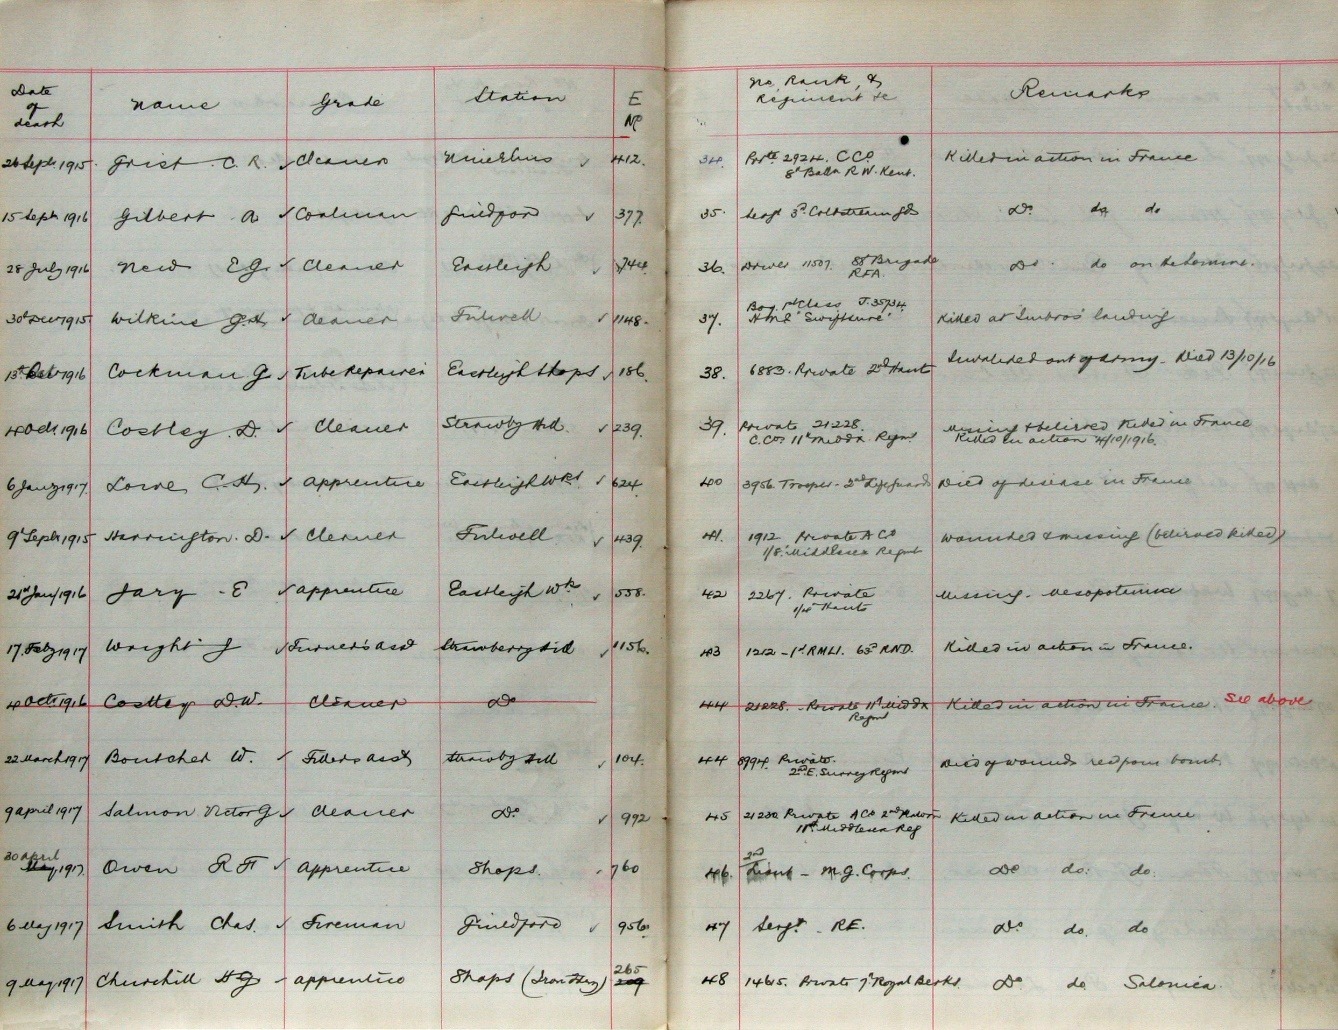 Date of death Name Grade Station E No No, Rank, & Regiment &c Remarks
26 Sept 1915 Grist C. R. ✓ Cleaner Nine Elms ✓ 412. 34. Prte 2924. C Co. 8th Battn R. W. Kent. Killed in action in France
15 Sept 1916 Gilbert A ✓ Coalman Guildford ✓ 377. 35. Sergt 3rd Coldstream Gds Do do do
28 July 1916 New E G. ✓ Cleaner Eastleigh ✓ 744. 36. Driver 11507. 88th Brigade RFA. Do do on the Somme.
30th 1915 Wilkins G.H. ✓ Cleaner Fulwell ✓ 1148. 37. Boy 1st Class J. 35734 H.M.S "Swiftsure" Killed at Imbros landing
13th 1916 Cockman G ✓ Tube Repairer Eastleigh Shops ✓ 186. 38. 6883. Private 2nd Hants Invalided out of army. Died 13/10/16
4 Oct. 1916 Costley D. ✓ Cleaner Strawby Hill. ✓ 239. 39. Private 21228. C. Coy 11th Middx Regmt Missing & believed Killed in France Killed in action 4/10/1916.
6 Jany 1917. Lowe C. H. ✓ Apprentice Eastleigh Wks ✓ 624. 40 3956 Trooper - 2nd Lifeguards Died of disease in France
9th Sept 1915 Harrington. D. ✓ Cleaner Fulwell ✓ 439. 41. 1912 Private A Co 1/8th Middlesex Regmt Wounded & missing (believed killed)
21st Jany 1916 Jary E ✓ apprentice Eastleigh Wks ✓ 558. 42 2267. Private 1/4th Hants Missing. Mesopotamia
17. Feby 1917 Wright J ✓ Turner's asst Strawberry Hill ✓ 1156. 43 1212 - 1st RMLI. 63rd RND. Killed in action in France.
4 Oct. 1916 Costley D.W. Cleaner Do 44 21228. Private 11th Middx Regmt Killed in action in France. See above
22 March 1917 Boutcher W. ✓ Fitters asst Strawby Hill ✓ 104. 44 8994. Private. 2nd E. Surrey Regmt Died of wounds recd from bomb
9 April 1917 Salmon Victor G ✓ Cleaner Do ✓ 992 45 21230 Private A Co 11th Middlesex Reg Killed in action in France
30 April May 1917. Owen R F ✓ Apprentice Shops. 760 46. 2nd Lieut - M.G. Corps. Do do. do.
6 May 1917 Smith Chas. ✓ Fireman Guildford ✓ 956. 47 Sergt. RE. Do do. do
9 May 1917 Churchill H G ✓ apprentice Shops (Iron Fdry) 265 209 48 14615. Private 7th Royal Berks. Do do Salonica